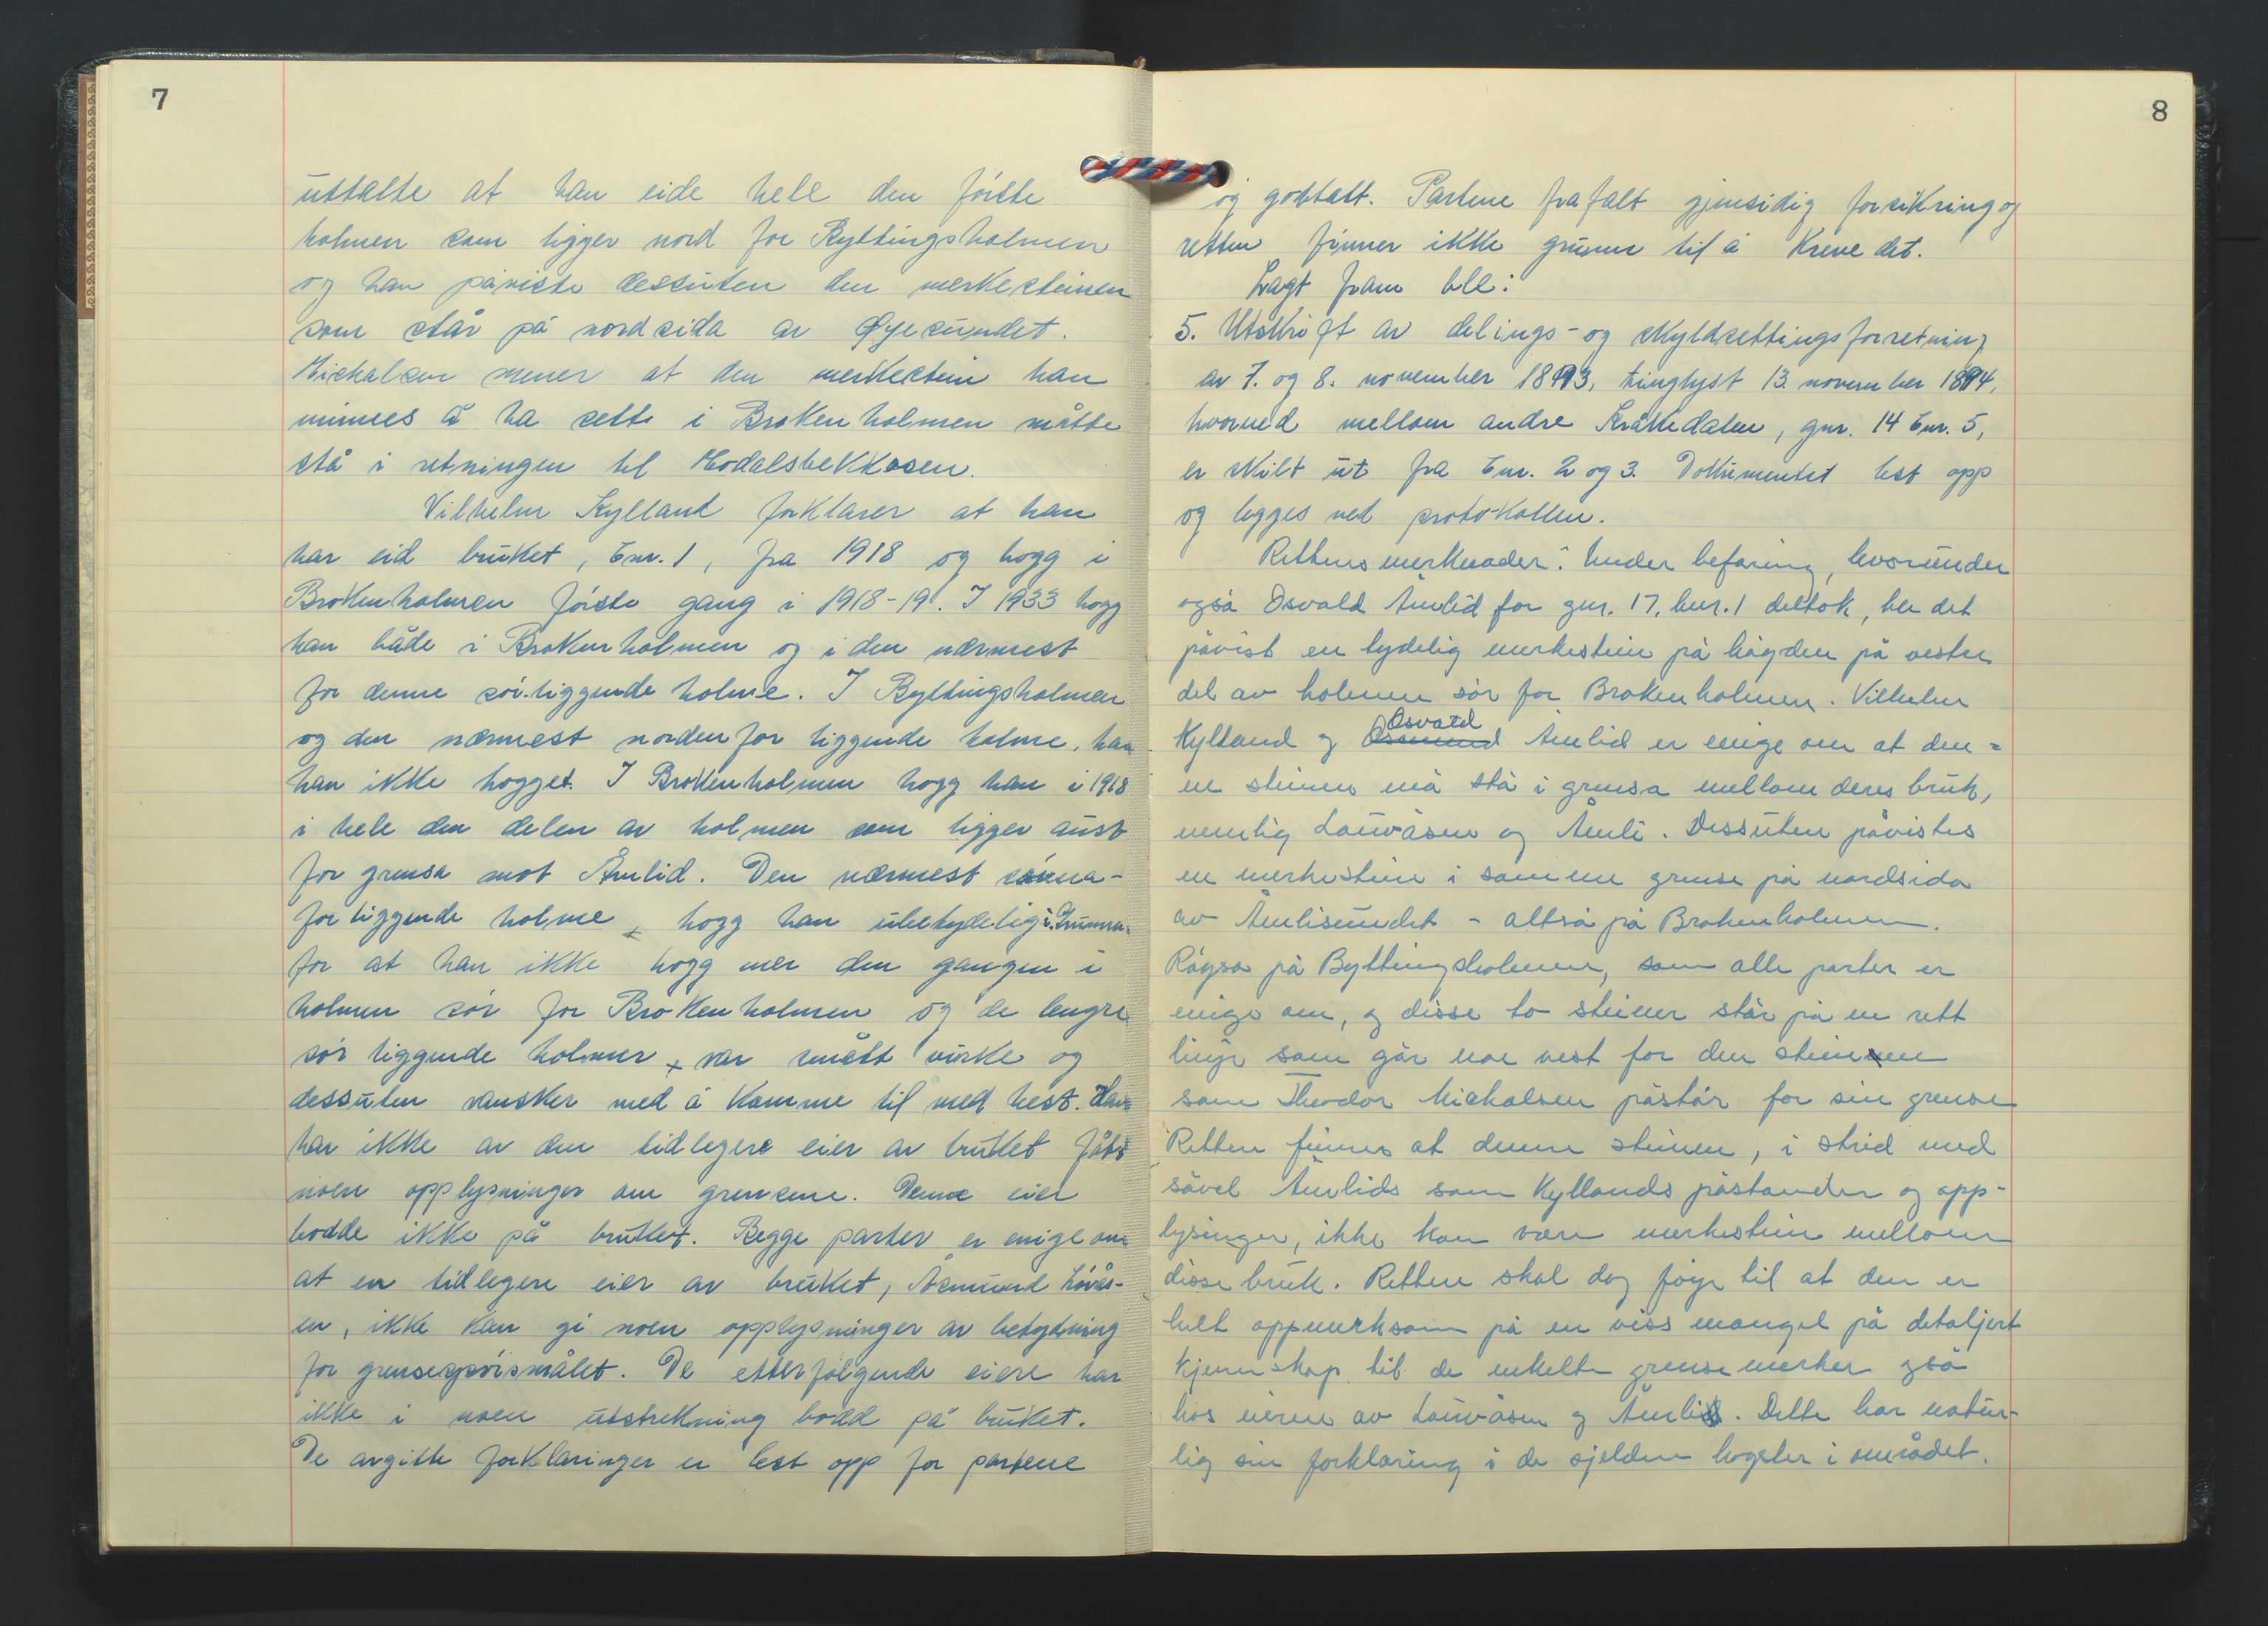 7
uttalte at han eide hele den første
holmen som ligger nord for Byttingsholmen
og han påviste dessuten den merkesteinen
som står på nordsida av Øyesundet.
Mickalsen mener at den merkestein han
minnes å ha sett i Brokenholmen måtte
stå i retningen til Modalsbekkosen.
Vilhelm Kylland forklarer at han
har eid bruket, bnr. 1, fra 1918 og hogg i
Brokenholmen første gang i 1918-19. I 1933 hogg
han både i Brokenholmen og i den nærmest
for denne sør-liggende holme. I Byttingsholmen
og den nærmest nordenfor liggende holme, har
han ikke hogget. I Brokenholmen hogg han i 1918
i hele den delen av holmen som ligger aust
for grensa mot Åmlid. Den nærmest sønna-
for liggende holme, hogg han ubetydelig i. Grunnen
for at han ikke hogg mer den gangen i
holmen sør for Brokenholmen og de lengre
sør liggende holmer, var smått virke og
dessuten vansker med å komme til med hest. Han
har ikke av den tidlegere eier av bruket fått
noen opplysninger om grensene. Denne eier
bodde ikke på bruket. Begge parter er enige om
at en tidlegere eier av bruket, Åsmund Løvås-
en, ikke kan gi noen opplysninger av betydning
for grensespørsmålet. De etterfølgende eiere har
ikke i noen utstrekning bodd på bruket.
De avgitte forklaringer er lest opp for partene
8
og godtatt. Partene frafalt gjensidig forsikring og
retten finner ikke grunn til å kreve det.
Lagt fram ble:
5. Utskrift av delings- og skyldsettingsforretning
av 7. og 8. november 1893, tinglyst 13. november 1894,
hvorved mellom andre Kråkedalen, gnr. 14 bnr. 5,
er skilt ut fra bnr. 2 og 3. Dokumentet lest opp
og legges ved protokollen.
Rettens merknader: Under befaring, hvorunder
også Osvald Åmlid for gnr. 17, bnr. 1 deltok, ble det
påvist en tydelig merkestein på høgden på vestre
del av holmen sør for Brokenholmen. Vilhelm
Kylland og Osvald Åmlid er enige om at den-
ne steinen må stå i grensa mellom deres bruk,
nemlig Lauvåsen og Åmli. Dessuten påvistes
en merkestein i samme grense på nordsida
av Åmlisundet - altså på Brokenholmen.
Røysa på Byttingsholmen, som alle parter er
enige om, og disse to steiner står på en rett
linje som går noe vest for den steinen
som Theodor Mickalsen påstår for sin grense
Retten finner at denne steinen, i strid med
såvel Åmlids som Kyllands påstander og opp-
lysinger, ikke kan være merkestein mellom
disse bruk. Retten skal dog føye til at den er
helt oppmerksom på en viss mangel på detaljert
kjennskap til de enkelte grensemerker også
hos eierne av Lauvåsen og Åmli. Dette har natur-
lig sin forklaring i de sjeldne hogster i området.